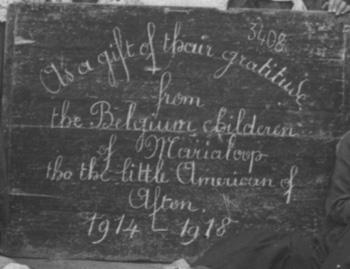 3408
As a gift of thair gratitude
from
the Belgium childeren
of Marialoop
tho the little American of
Afton.
1914 - 1918